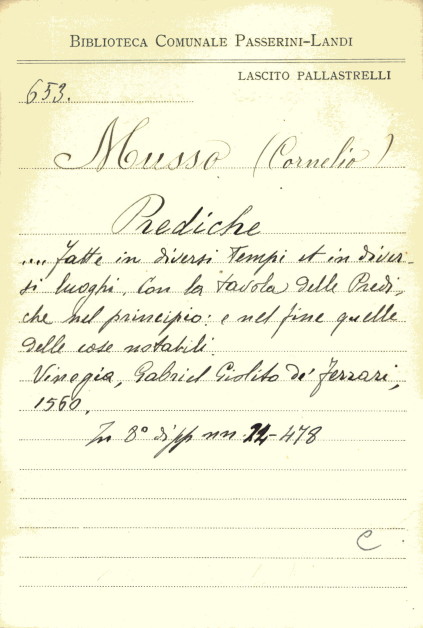 BIBLIOTECA COMUNALE PASSERINI-LANDI
LASCITO PALLASTRELLI
653.
Musso (Cornelio)
Prediche
.... fatte in diversi Tempi et in diver-
si luoghi. Con la tavola delle Predi,
che nel principio: e nel fine quelle
delle cose notabili.
Vinegia, Gabriel Giolito de' Ferrari,
1560.
In 8° di pp nn 12-478
C